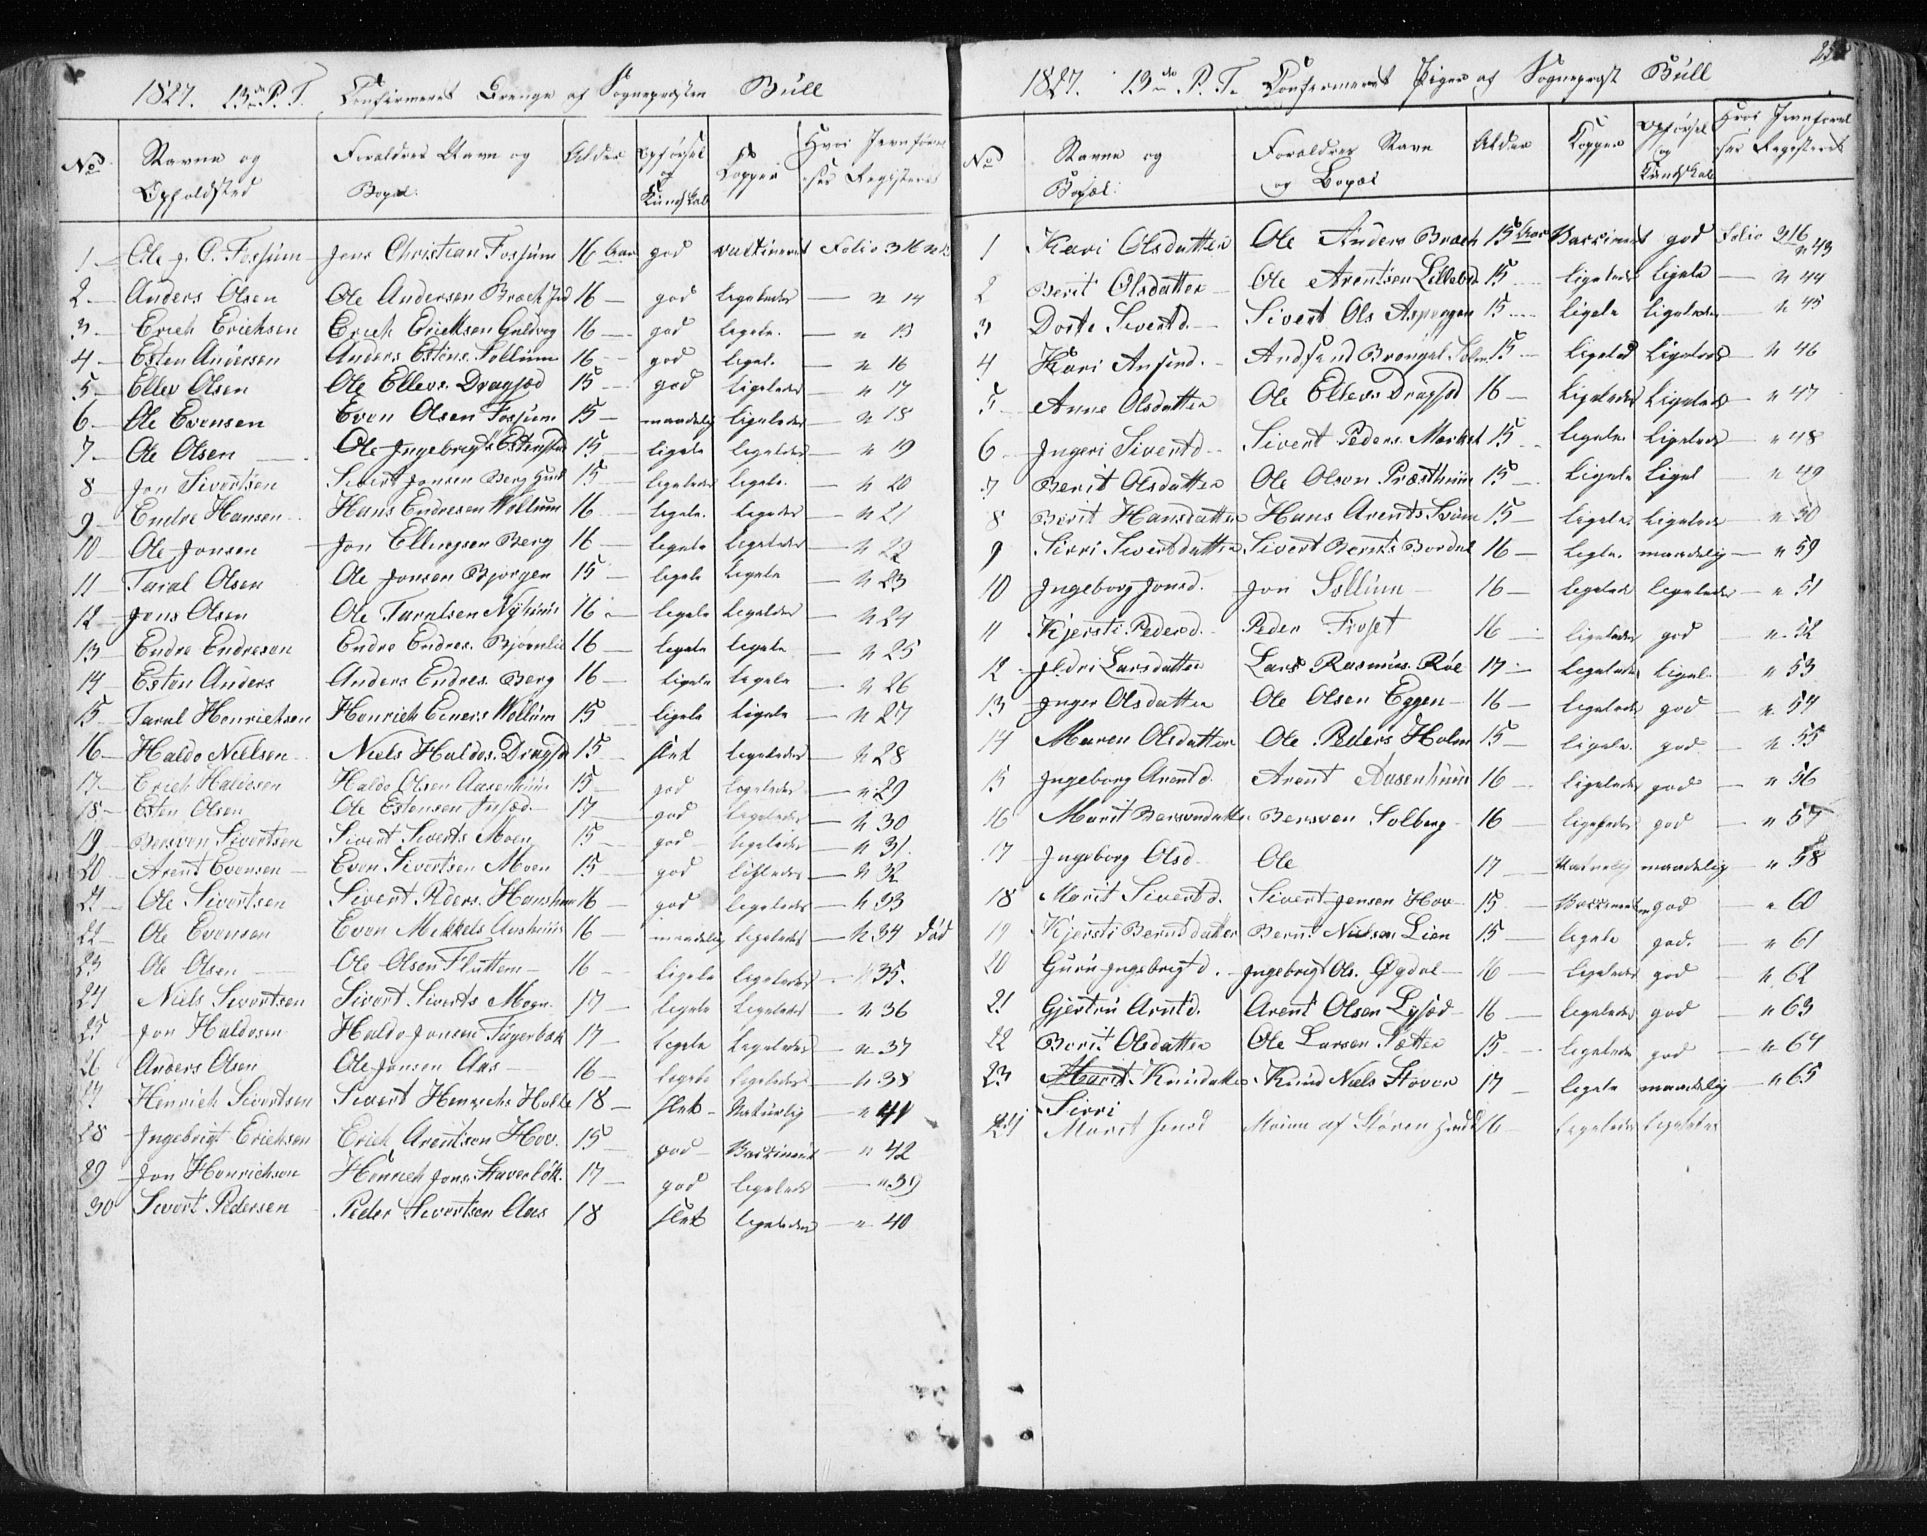 1827. 13de P. T. Confirmerede Drenge af Sognepræsten Büll
No Navne og Opholdsted Forældres Navn og Bopæl Alder Opførsel og Kundskab Kopper Hvor Jevnføres Registeret
1 Ole J. O. Fossum Jens Christian Fossum 16 Aar god vaccineret Folio
2 Anders Olsen Ole Andersen Bræch 16 god ligeledes " 14
3 Erich Erichsen Erich Ericksen Guldvog 16 god ligele. " 15
4 Esten Andersen Anders Estens. Sollum 16 god ligel. " 16
5 Ellev Olsen Ole Ellevs. Dragsod 15 god ligeledes " 17
6 Ole Evensen Even Olsen Fossum 15 maadelig ligeledes " 18
7 Ole Olsen Ole Ingebrigts. Estenstad 15 ligele ligeledes " 19
8 Jon Sivertsen Sivert Jonsen Berg 15 ligeledes ligele. " 20
9 Endre Hansen Hans Endresen Wollum 16 ligele. ligeledes " 21
10 Ole Jonsen Jon Ellingsen Berg 16 ligele ligeledes " 22
11 Taral Olsen Ole Jonsen Bjorgen 15 ligele ligele " 23
12 Jens Olsen Ole Taralsen Nyhuus 16 ligele ligeledes " 24
13 Endre Endresen Endre Endres. Bjørnlie 16 ligele ligele " 25
14 Esten Anders Anders Endres. Berg 16 ligele ligele " 26
15 Taral Henrichsen Henrich Einers Wollum 15 ligele ligele " 27
16 Haldo Nielsen Niels Haldos. Dragsod 15 slet ligeledes " 28
17 Erich Haldosen Haldo Olsen Aasenhuus 15 god ligeledes " 29
18 Esten Olsen Ole Estensen 17 god ligeledes " 30
19 Bersven Sivertsen Sivert Siverts Moen 15 god ligeledes " 31
20 Arent Evensen Even Sivertsen Moen 15 god ligeledes " 32
21 Ole Sivertsen Sivert Peders. 16 god ligeledes " 33
22 Ole Evensen Even Mikkels Aashuus 16 maadelig ligeledes " 34 død
23 Ole Olsen Ole Olsen Fluttem 16 ligele ligeledes " 35.
24 Niels Sivertsen Sivert Siverts Moen 17 ligele ligeledes " 36
25 Jon Haldosen Haldo Jonsen Fagerbak 17 ligele ligeledes " 37
26 Anders Olsen Ole Jonsen Aas 16 ligele ligeledes " 38
27 Henrich Sivertsen Sivert Henrichs 18 slet Naturlig " 41
28 Ingebrigt Erichsen Erich Arentsen Hov. 15 god Vaccineret " 42
29 Jon Henrichsen Henrich Jons. 17 god ligeledes " 39
30 Sivert Pedersen Peder Sivertsen Aas 18 slet ligeledes " 40
1827. 13de P. T. Confirmerede Piger af Sognepræst Büll
No Navne og Bopæl. Forældres Navn og Bopæl Alder Kopper Opførsel og Kundskab Hvor Jevnføres Registeret
1 Kari Olsdatter Ole Anders Bræch 15 Aar Vaccineret god Folio 316 " 43
2 Berit Olsdatter Ole Arentsen 15 ligeledes ligele " 44
3 Dorte Sivertd. Sivert Ols Aspeggen 15 ligele ligeledes " 45
4 Kari 15 ligeled ligeleds " 46
5 Anne Olsdatter Ole Ellevs Dragsod 16 ligeledes ligeleds " 47
6 Ingeri Sivertd. Sivert Peders. 15 ligelde ligeleds " 48
7 Berit Olsdatter Ole Olsen Præsthuus 15 ligele ligel " 49
8 Berit Hansdatter Hans Arents 15 ligele. ligeleds " 50
9 Sirri Sivertdatter Sivert Bernts 16 ligele. maadelig " 59
10 Ingeborg Jonsd. Jon Sollum 16 ligeleds ligeledes " 51
11 Kjersti Pedersd. Peder Froset 16 ligeledes god " 52
12 Ildri Larsdatter Lars Rasmus. Røe 17 ligeledes ligel. " 53
13 Inger Olsdatter Ole Olsen Eggen 16 ligeledes god " 54
14 Maren Olsdatter Ole Peders Holm 15 ligele. god " 55
15 Ingeborg Arentd. Arent Aasenhuus 16 ligeledes god " 56
16 Marit Bersvendatter Bersven Solberg 16 ligeledes god " 57
17 Ingeborg Olsd. Ole 17 Naturlig maadelig " 58
18 Marit Sivertd. Sivert Jensen Hov 15 god " 60
19 Kjersti Berntdatter Bernt Nielsen Lien 15 ligele god. " 61
20 Guru Ingebrigtd. Ingebrigt Ols. Øgdal 16 ligeledes god " 62
21 Gjertru Arntd. Arent Olsen Lysød 16 ligeledes god " 63
22 Berit Olsdatter Ole Larsen Sætter 15 ligelede god " 64
23 Marit Knudatter Knud Niels Stover 17 ligele maadelig " 65
Sirri
24 Marit Jensd af Støren 16 ligeledes ligeledes